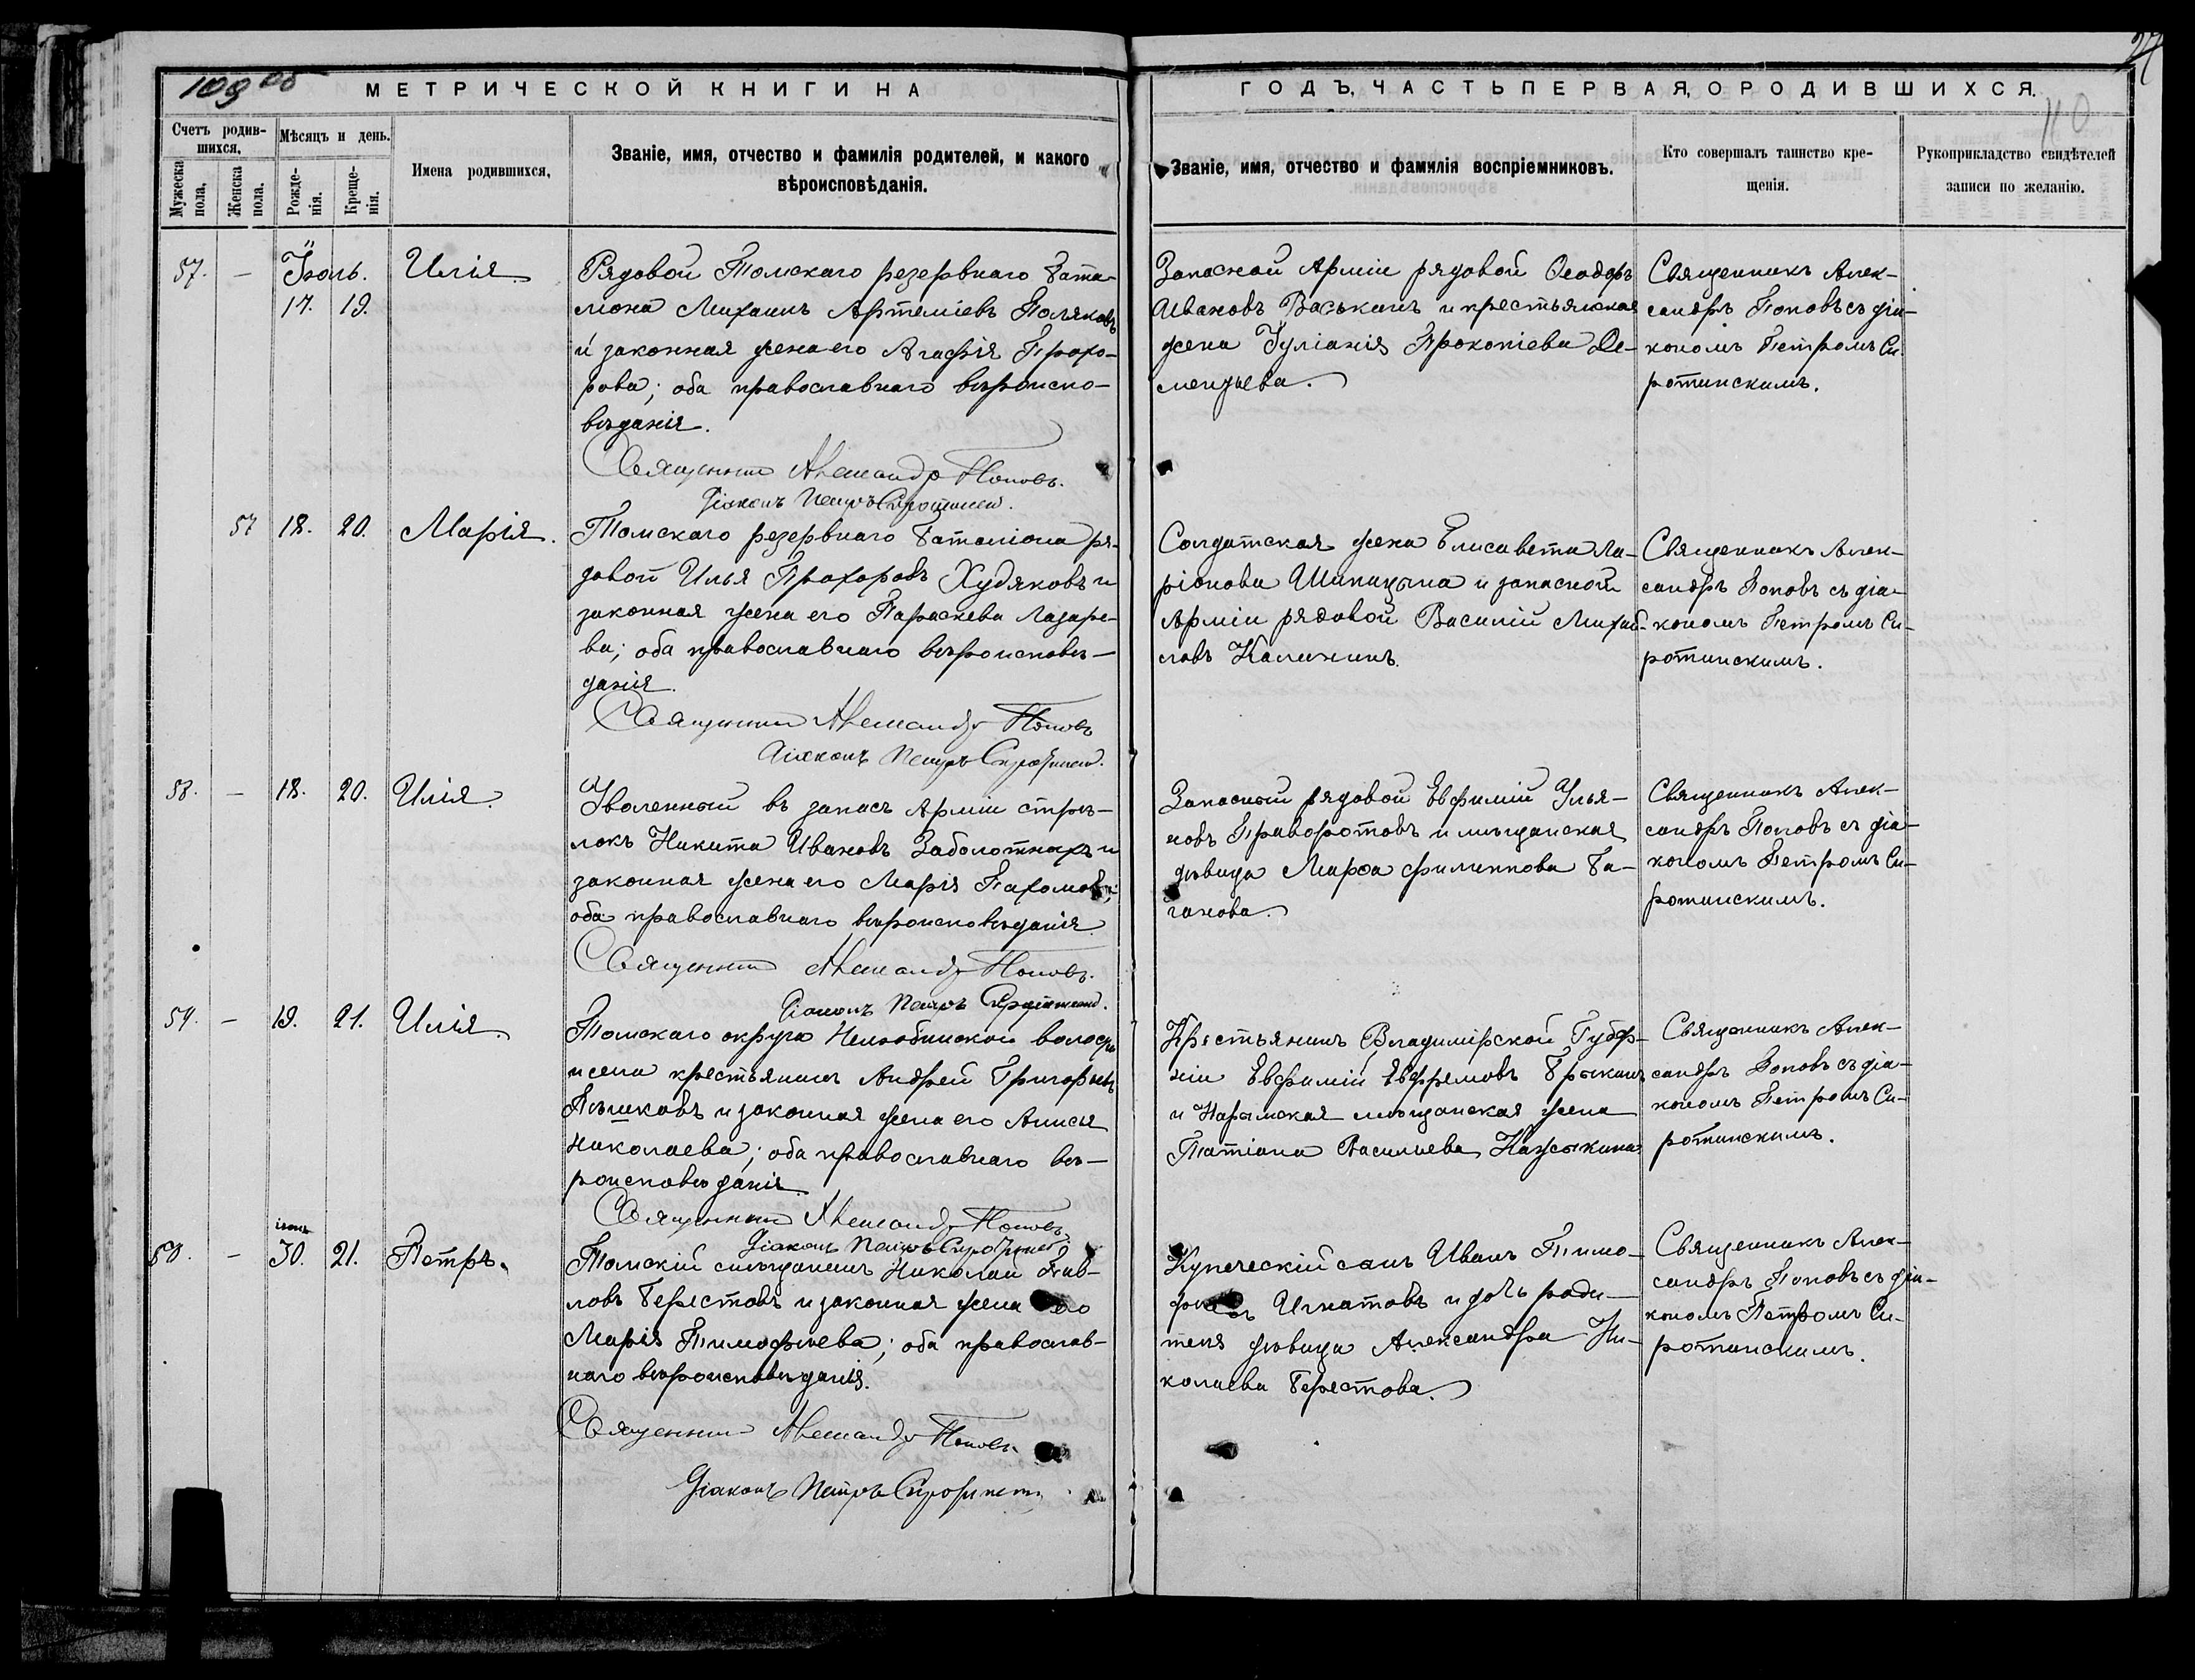 109 об
МЕТРИЧЕСКОЙ КНИГИ НА
ГОДЪ, ЧАСТЬ ПЕРВАЯ, О РОДИВШИХСЯ.
110
Счетъ родив-
шихся,
Мѣсяцъ и день.
Мужеска
пола.
Женска
пола.
Рожде-
нія.
Креще-
нія.
Имена родившихся,
Званіе, имя, отчество и фамилія родителей, и какого
вѣроисповѣданія.
Званіе, имя, отчество и фамилія воспріемниковъ.
Кто совершалъ таинство кре-
щенія.
Рукоприкладство свидѣтелей
записи по желанію.
57. — Іюль. Илія.
17. 19.
Рядовой Томскаго резервнаго бата-
ліона Михаилъ Артеміевъ Поляковъ
и законная жена его Агафія Прохо-
рова; оба православнаго вѣроиспо-
вѣданія.
Священникъ Александръ Поповъ.
Діаконъ Петръ Сиротинскій.
Запасной Арміи рядовой Ѳеодоръ
Ивановъ Васькинъ и крестьянская
жена Іуліанія Прокопіева Де-
ментьева.
Священникъ Алек-
сандръ Поповъ съ діа-
кономъ Петромъ Си-
ротинскимъ.
57 18. 20. Марія.
Томскаго резервнаго баталіона ря-
довой Илья Прохоровъ Худяковъ и
законная жена его Параскева Лазаре-
ва; оба православнаго вѣроисповѣ-
данія.
Священникъ Александръ Поповъ
Діаконъ Петръ Сиротинскій.
Солдатская жена Елисавета Ла-
ріонова Шипицына и запасной
Арміи рядовой Василій Михай-
ловъ Калининъ.
Священникъ Алек-
сандръ Поповъ съ діа-
кономъ Петромъ Си-
ротинскимъ.
58. — 18. 20. Илія.
Уволенный въ запасъ Арміи стрѣ-
локъ Никита Ивановъ Заболотныхъ и
законная жена его Марія Пахомова;
оба православнаго вѣроисповѣданія.
Священникъ Александръ Поповъ.
Діаконъ Петръ Сиротинскій.
Запасный рядовой Евфимій Улья-
новъ Праворотовъ и мѣщанская
дѣвица Марѳа Филиппова Ба-
ганова.
Священникъ Алек-
сандръ Поповъ съ діа-
кономъ Петромъ Си-
ротинскимъ.
59. — 19. 21. Илія.
Томскаго округа Нелюбинской волости
и села крестьянинъ Андрей Григорьевъ
Пѣшковъ и законная жена его Анисья
Николаева; оба православнаго вѣ-
роисповѣданія.
Священникъ Александръ Поповъ.
Діаконъ Петръ Сиротинскій.
Крестьянинъ Владимірской Губер-
ніи Евфимій Ефремовъ Брыкинъ
и Нарымская мѣщанская жена
Татіана Васильева Нажыкина
Священникъ Алек-
сандръ Поповъ съ діа-
кономъ Петромъ Си-
ротинскимъ.
іюнь
— 30. 21. Петръ.
Томскій мѣщанинъ Николай Пав-
ловъ Берестовъ и законная жена его
Марія Тимофѣева; оба православ-
наго вѣроисповѣданія.
Священникъ Александръ Поповъ
Діаконъ Петръ Сиротинскій
Купеческій сынъ Иванъ Тимо-
фѣевъ Игнатовъ и дочь роди-
теля дѣвица Александра Ни-
колаева Берестова.
Священникъ Алек-
сандръ Поповъ съ діа-
кономъ Петромъ Си-
ротинскимъ.